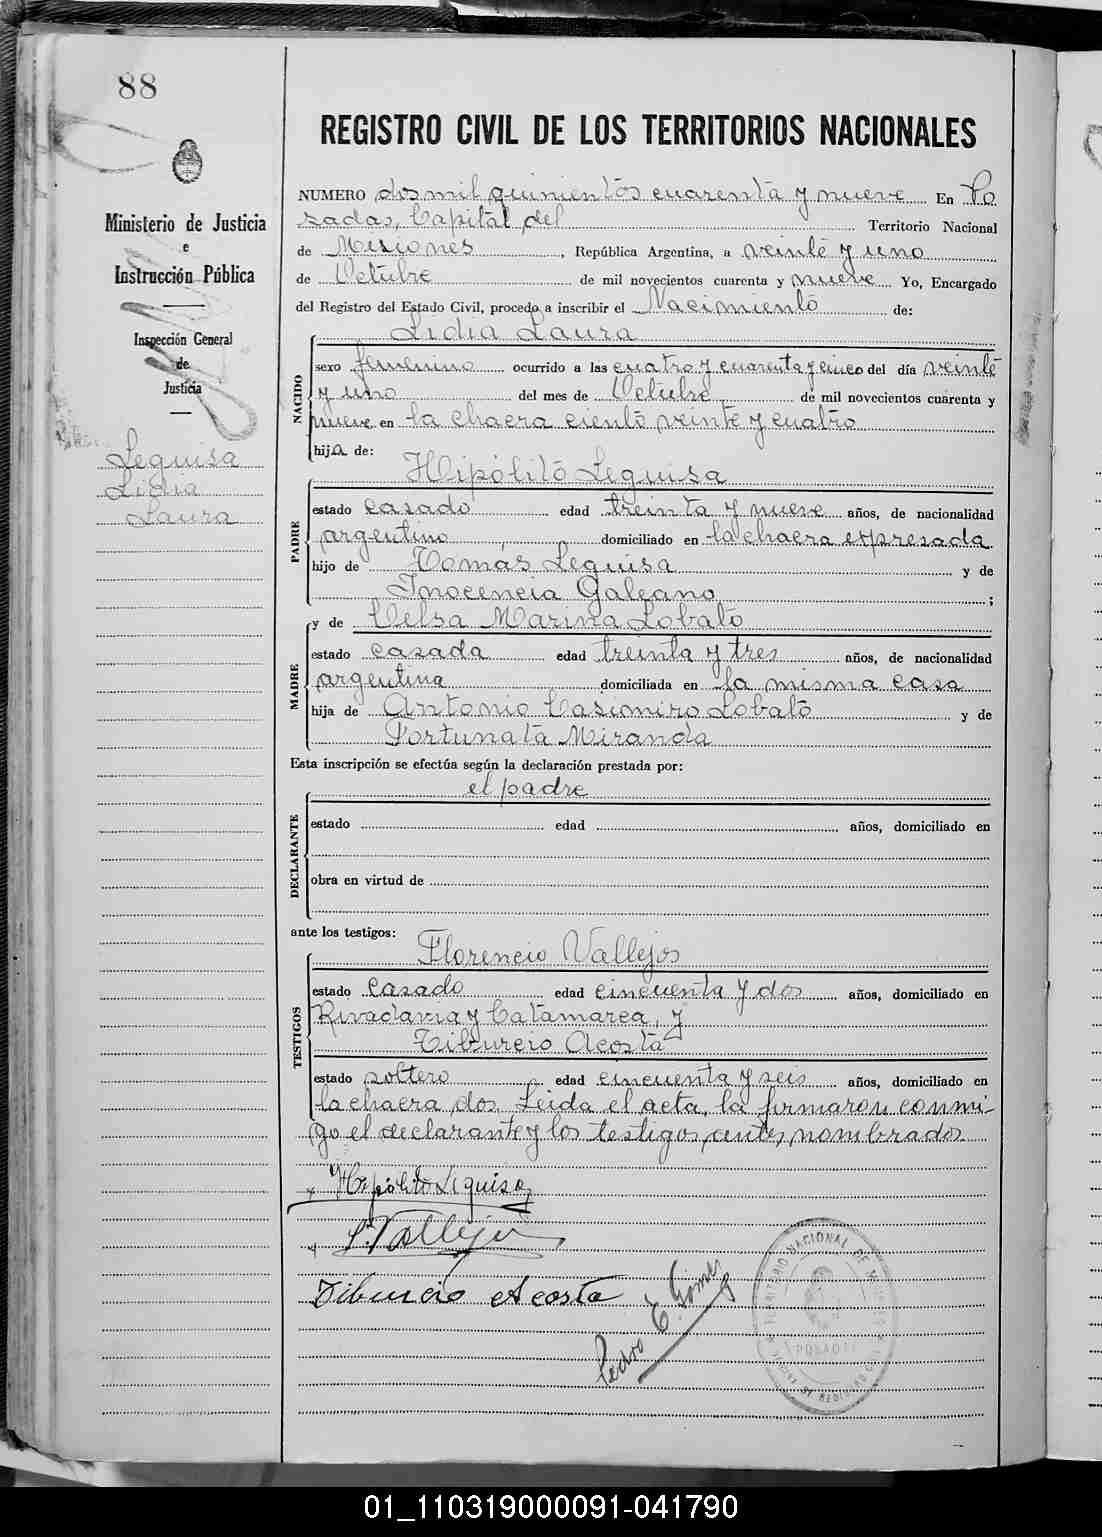 88
REGISTRO CIVIL DE LOS TERRITORIOS NACIONALES
Ministerio de Justicia
e
Instrucción Pública
Inspección General
de
Justicia
Leguisa
Lidia
Laura
NUMERO dos mil quinientos cuarenta y nueve En Po
sadas, Capital del Territorio Nacional
de Misiones, República Argentina, a veinte y uno
de Octubre de mil novecientos cuarenta y nueve Yo, Encargado
del Registro del Estado Civil, procedo a inscribir el Nacimiento de:
Lidia Laura
NACIDO
sexo femenino ocurrido a las cuatro y cuarenta y cinco del día veinte
y uno del mes de Octubre de mil novecientos cuarenta y
nueve en la chacra ciento veinte y cuatro
hija de:
Hipólito Leguisa
PADRE
estado casado edad treinta y nueve años, de nacionalidad
argentino domiciliado en la chacra expresada
hijo de Tomás Leguisa y de
Inocencia Galeano ;
y de Celsa Marina Lobato
MADRE
estado casada edad treinta y tres años, de nacionalidad
argentina domiciliada en la misma casa
hija de Antonio Casimiro Lobato y de
Fortunata Miranda
Esta inscripción se efectúa según la declaración prestada por:
el padre
DECLARANTE
estado edad años, domiciliado en
obra en virtud de
ante los testigos:
Florencio Vallejos
TESTIGOS
estado casado edad cincuenta y dos años, domiciliado en
Rivadavia y Catamarca, y
Tiburcio Acosta
estado soltero edad cincuenta y seis años, domiciliado en
la chacra dos. Leida el acta, la firmaron conmi-
go el declarante y los testigos antes nombrados
x Hipólito Leguisa
x F. Vallejos
Tiburcio Acosta
Pedro E. Gómez
TERRITORIO NACIONAL DE MISIONES
POSADAS
01_110319000091-041790